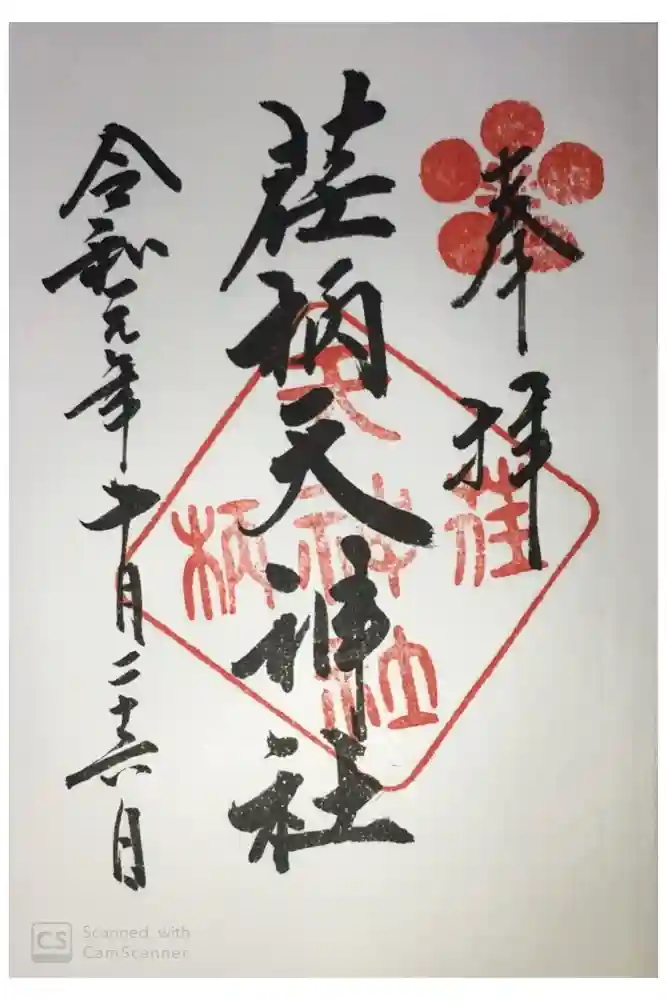 奉拝
荏柄天神社
令和元年十月二十六日
荏柄天神社
CS
Scanned with
CamScanner